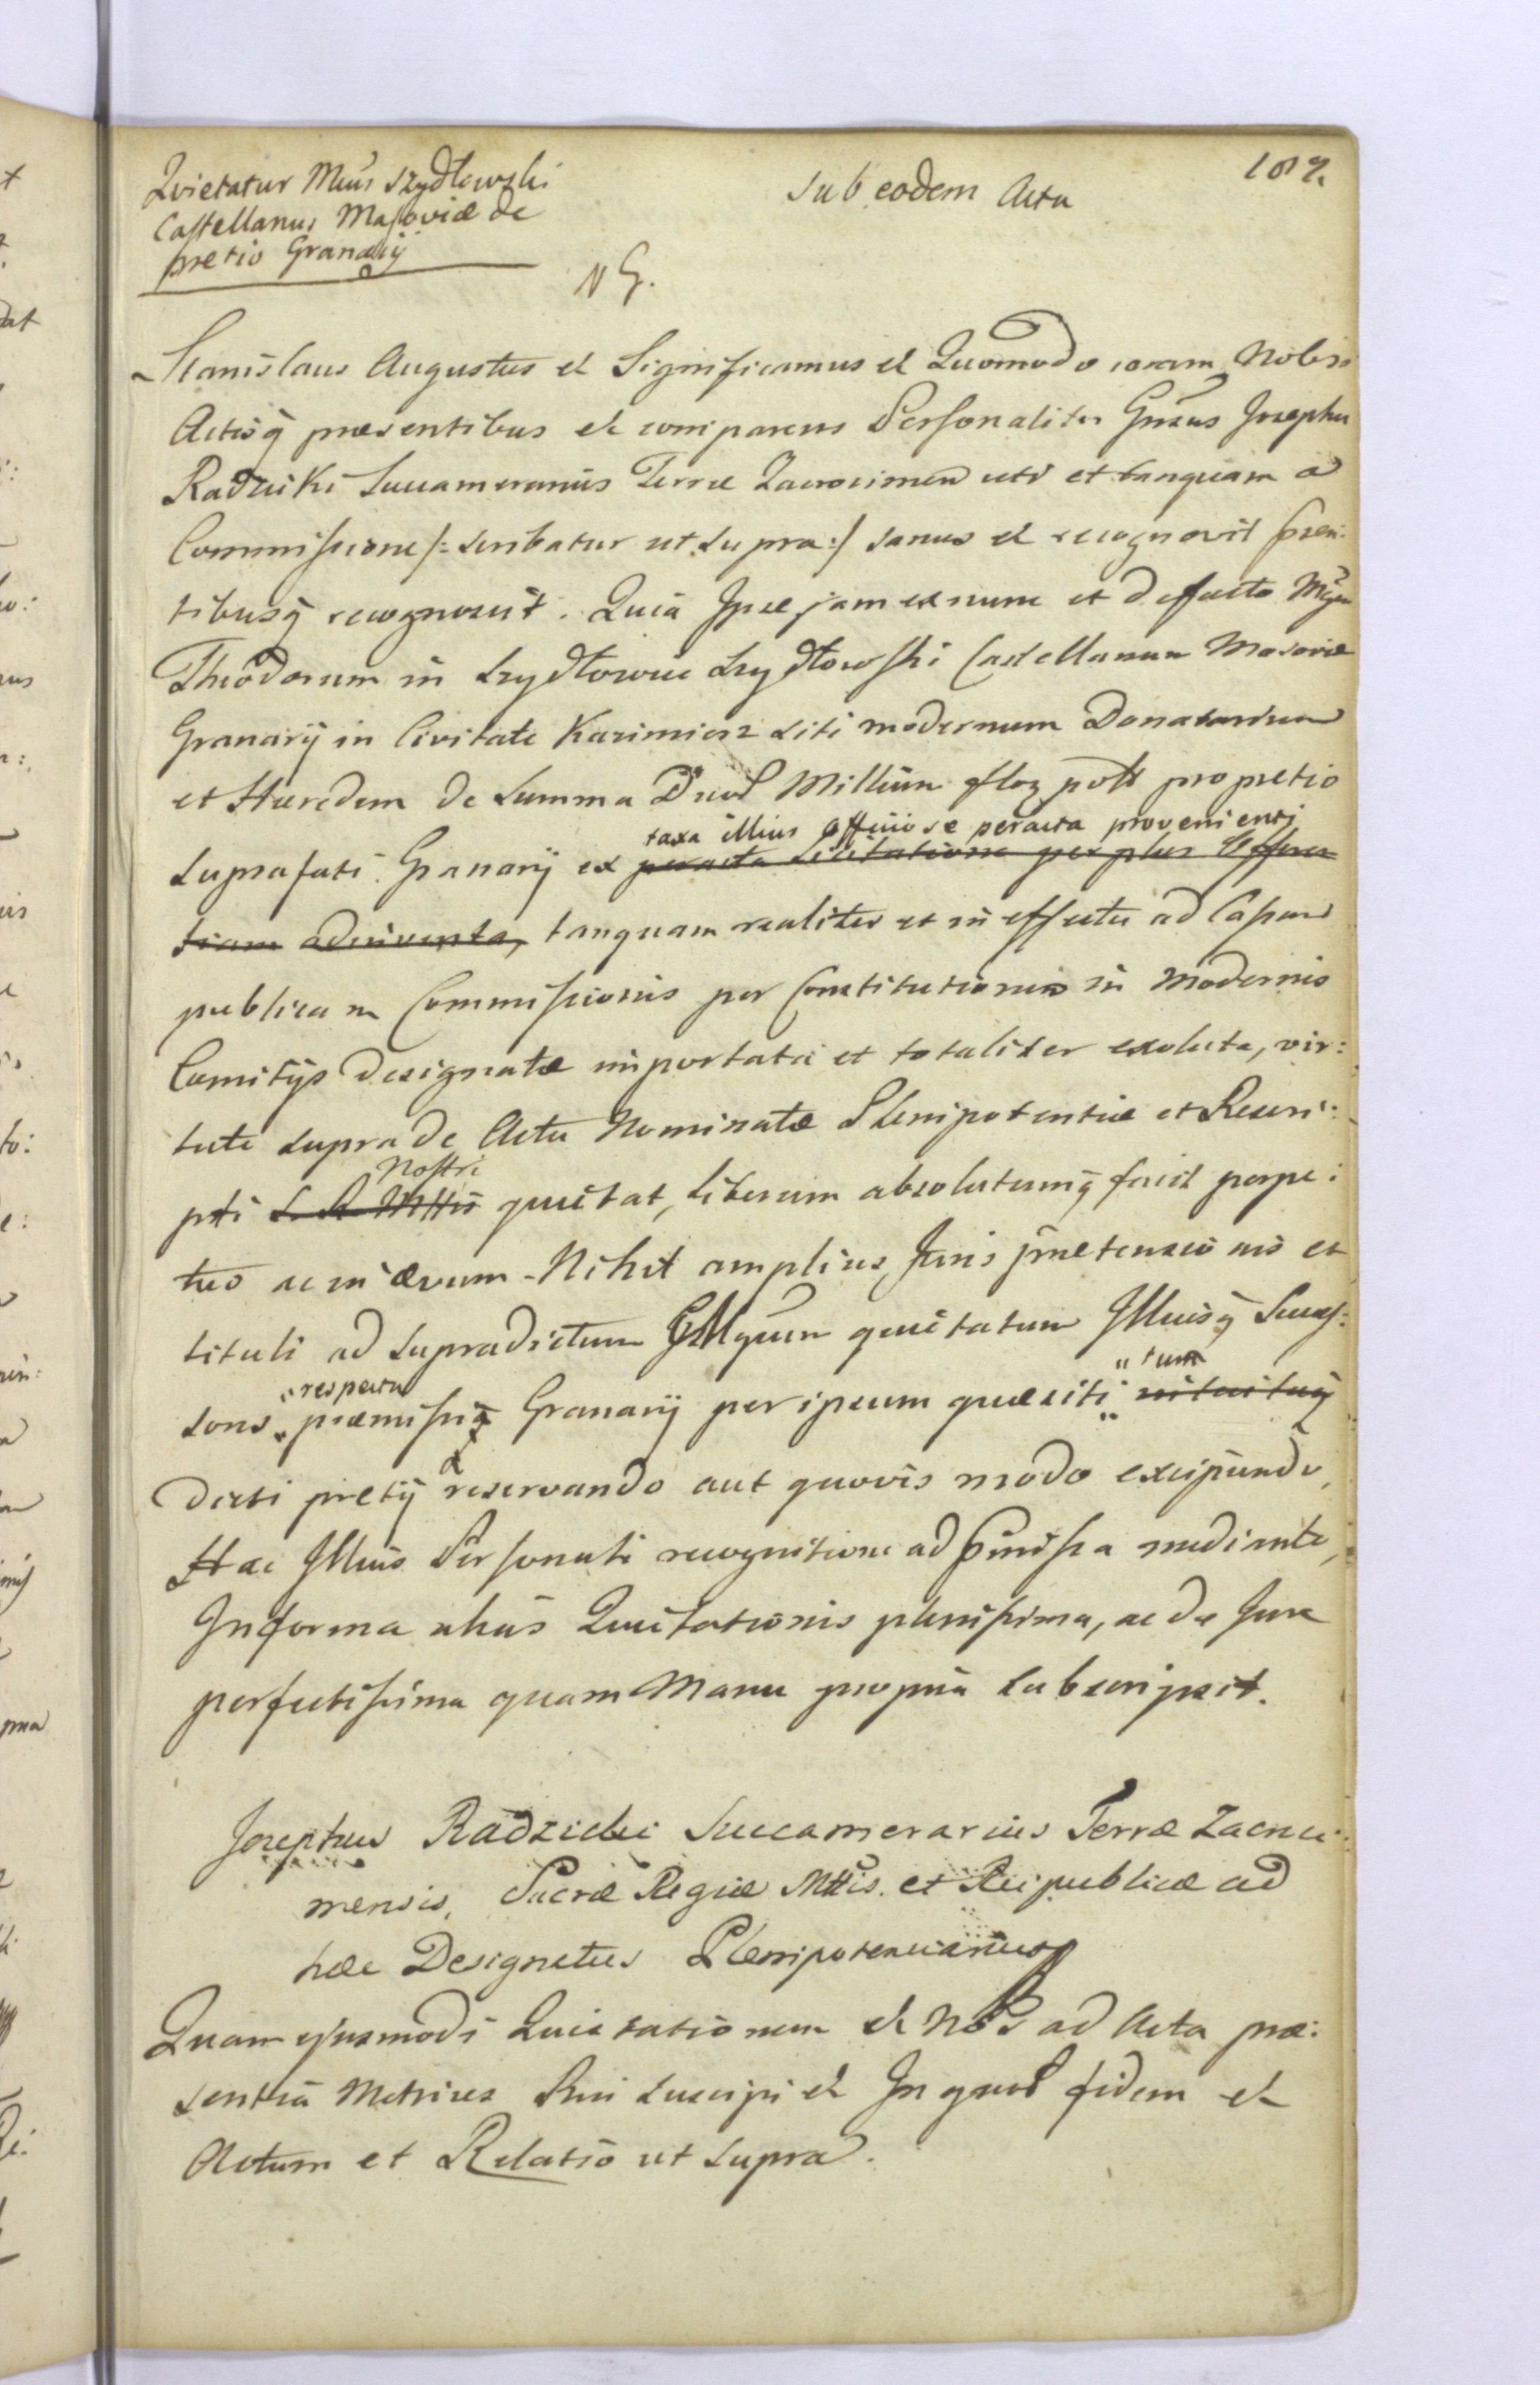 Quietatur Mcus Szydłowski
Castellanus Masoviæ de
pretio Granarij
Sub eodem Actu
187.
NG.
Stanislaus Augustus et Significamus et Quomodo coram Nobis
Actisq præsentibus et comparens Personaliter Gnsus Josephus
Radzicki Succamerarius Terræ Zacrocimen uti et tanquam a
Commissione /: scribatur ut supra :/ sanus et recognovit præn:
tibusq recognoscit. Quia Ipse jam ex nunc et de facto Mgcum
Theodorum in Szydłowiec Szydłowski Castellanum Masoviæ
Granarij in Civitate Kazimierz siti modernum Donatarium
et Hæredem de Summa Duod Millium floz poll pro pretio
taxa illius officiose peracta provenienti
suprafati Granarij ex peracta Licitatione per plus Offeren
tiam adinventa, tanquam realiter et in effectu ad Cassam
publicam Commissionis per Constitutionis in modernis
Comitijs designatæ importata et totaliter exoluta, vir:
tute supra de Actu Nominatæ Plenipotentiæ et Rescri:
Nostri
pti S. R. Mttis quietat, liberum absolutumq facit perpe:
tuo ac in ævum - Nihil amplius Juris prætensionis et
tituli ad supradictum Mgcum quietatum Illiusq Success:
respectu
sores præmissiq Granarij per ipsum quæsiti
"tum
dicti pretij reservando aut quovis modo excipiendo,
Hac Illius Personali recognitione ad præmissa mediante,
In forma alias Quietationis plenissima, ac de Jure
perfectissima quam Manu propria subscripsit.
Josephus Radzicki Succamerarius Terræ Zacroci:
mensis, Sacræ Regiæ Mttis et Reipublicæ ad
hæc Designatus Plenipotenciarius
Quam ejusmodi Quietationem et Nos ad Acta præ:
sentia Metrices Rni suscipi et In quod fidem et
Actum et Relatio ut supra.